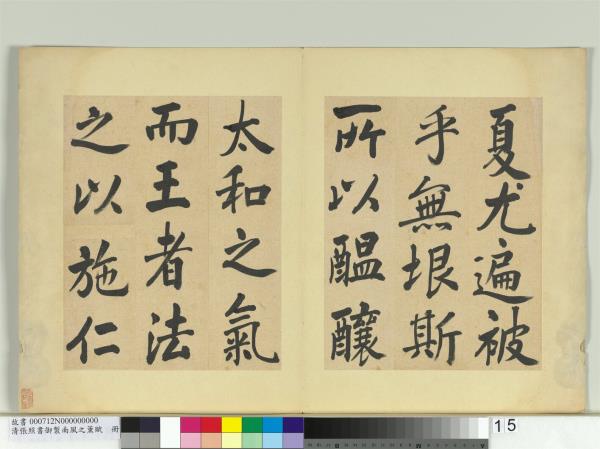 夏尤遍被
乎無垠斯
所以醞釀
太和之氣
而王者法
之以施仁
故書 000712N000000000
清張照書御製南風之薰賦 冊
15